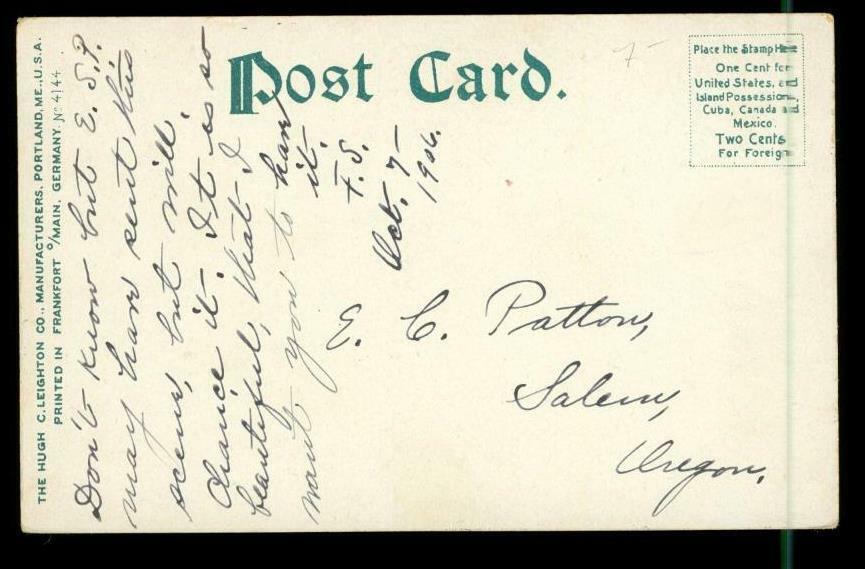 Post Card.
Place the Stamp Here
One Cent for
United States, and
Island Possessions
Cuba, Canada and
Mexico.
Two Cents
For Foreign
THE HUGH C. LEIGHTON CO., MANUFACTURERS, PORTLAND, ME., U.S.A.
PRINTED IN FRANKFORT O/MAIN, GERMANY. No 4144
Don't know but E. S. P.
may have sent this
scene, but will
chance it. It is so
beautiful, that I
want you to have
it.
F. S.
Oct. 7-
1906.
E. C. Patton,
Salem,
Oregon.
7-